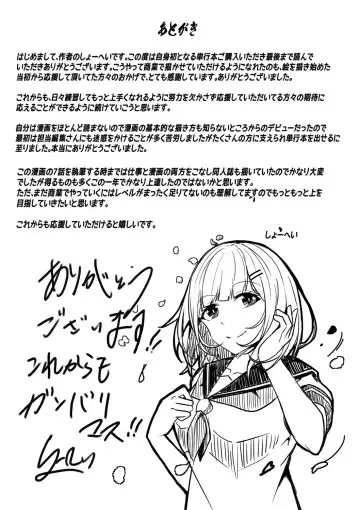 あとがき
はじめまして、作者のしょーへいです。この度は自身初となる単行本ご購入いただき最後まで読んで
いただきありがとうございます。こうやって商業で描かせていただけるようになれたのも、絵を描き始めた
当初から応援して頂いてた方々のおかげで、とても感謝しています。ありがとうございました。
これからも、日々練習してもっと上手くなれるように努力を欠かさず応援いただいてる方々の期待に
応えることができるように続けていこうと思います。
自分は漫画をほとんど読まないので漫画の基本的な描き方も知らないところからのデビューだったので
最初は担当編集さんにも迷惑をかけることが多く苦労しましたがたくさんの方に支えられ単行本を出せるに
至りました。本当にありがとうございました。
この漫画の7話を執筆する時までは仕事と漫画の両方をこなし同人誌も描いていたのでかなり大変
でしたが得るものも多くこの一年でかなり上達したのではないかと思います。
ただ、まだ商業でやっていくにはレベルがまったく足りてないのも理解してますのでもっともっと上を
目指していきたいと思います。
これからも応援していただけると嬉しいです。
しょーへい
ありがとう
ございます!!
これからも
ガンバリ
マス!!